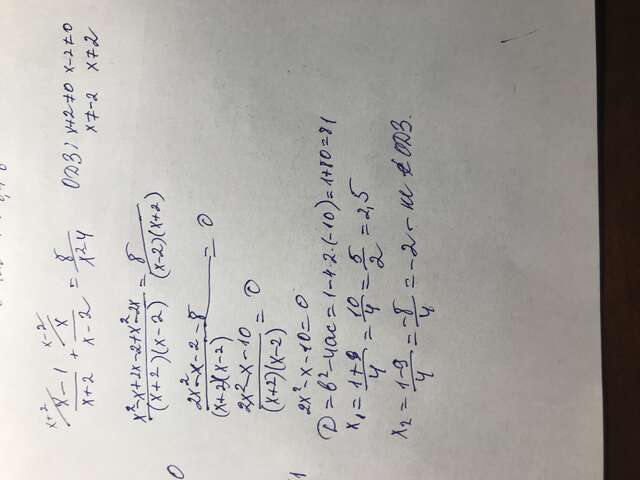 x+2 x-2
x-1/x+2 + x/x-2 = 8/x²-4 ОДЗ: x+2≠0 x-2≠0
x≠-2 x≠2
x²-x+2x-2+x²-2x/(x+2)(x-2) = 8/(x-2)(x+2)
2x²-x-2-8/(x+2)(x-2) = 0
2x²-x-10/(x+2)(x-2) = 0
2x²-x-10=0
D=b²-4ac=1-4·2·(-10)=1+80=81
x₁=1+9/4=10/4=5/2=2,5
x₂=1-9/4=-8/4=-2 - не ∈ ОДЗ.